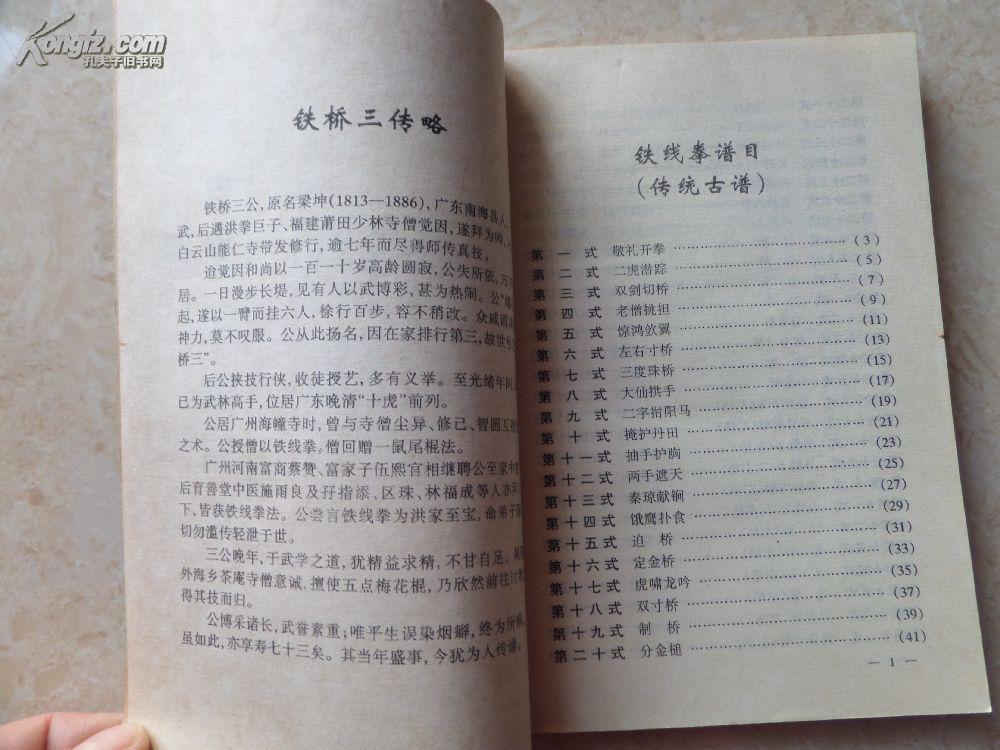 Kongfz.com
孔夫子旧书网
铁桥三传略
铁桥三公,原名梁坤(1813—1886),广东南海县人。
武,后遇洪拳巨子、福建莆田少林寺僧觉因,遂拜为师,
白云山能仁寺带发修行,逾七年而尽得师传真技。
逾觉因和尚以一百一十岁高龄圆寂,公失所依,乃
居。一日漫步长堤,见有人以武博彩,甚为热闹。公
起,遂以一臂而挂六人,徐行百步,容不稍改。众咸谓
神力,莫不叹服。公从此扬名,因在家排行第三,故世
桥三”。
后公挟技行侠,收徒授艺,多有义举。至光绪年间,
已为武林高手,位居广东晚清“十虎”前列。
公居广州海幢寺时,曾与寺僧尘异、修己、智圆互
之术。公授僧以铁线拳,僧回赠一鼠尾棍法。
广州河南富商蔡赞、富家子伍熙官相继聘公至家中
后育善堂中医施雨良及孖指添、区珠、林福成等人亦
下,皆获铁线拳法。公尝言铁线拳为洪家至宝,命弟子
切勿滥传轻泄于世。
三公晚年,于武学之道,犹精益求精,不甘自足。闻
外海乡茶庵寺僧意诚,擅使五点梅花棍,乃欣然前往
得其技而归。
公博采诸长,武誉素重;唯平生误染烟癖,终为所
虽如此,亦享寿七十三矣。其当年盛事,今犹为人传诵。
铁线拳谱目
(传统古谱)
第一式 敬礼开拳 ……………… (3)
第二式 二虎潜踪 ……………… (5)
第三式 双剑切桥 ……………… (7)
第四式 老僧挑担 ……………… (9)
第五式 惊鸿敛翼 ……………… (11)
第六式 左右寸桥 ……………… (13)
第七式 三度珠桥 ……………… (15)
第八式 大仙拱手 ……………… (17)
第九式 二字拑阳马 ……………… (19)
第十式 掩护丹田 ……………… (21)
第十一式 抽手护胸 ……………… (23)
第十二式 两手遮天 ……………… (25)
第十三式 秦琼献锏 ……………… (27)
第十四式 饿鹰扑食 ……………… (29)
第十五式 迫桥 ……………… (31)
第十六式 定金桥 ……………… (33)
第十七式 虎啸龙吟 ……………… (35)
第十八式 双寸桥 ……………… (37)
第十九式 制桥 ……………… (39)
第二十式 分金槌 ……………… (41)
— 1 —